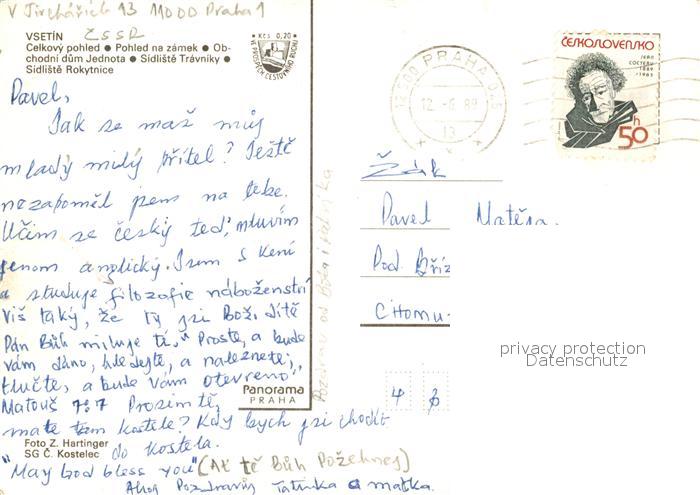 V Jirchářích 13 11000 Praha 1
ČSSR
VSETÍN
Celkový pohled ● Pohled na zámek ● Ob-
chodní dům Jednota ● Sídliště Trávníky ●
Sídliště Rokytnice
Kčs 0,20
VE PROSPĚCH CESTOVNÍHO RUCHU
Pavel,
Jak se maž můj
mladý milý přítel? Ještě
nezapoměl jsem na tebe.
Učím se český teď, mluvím
jenom anglický. Jsem s Kení
a studuje filozofie náboženství
Víš taký, že ty jsi Boží dítě
Pán Bůh miluje tě, "Proste, a bude
vám dáno, hledejte, a naleznete;,
tlučte, a bude Vám otevřeno"
Matouš 7:7 Prosím tě,
mate tam kostele? Kdy bych jsi chodit
do kostela.
"May God bless you" (Ať tě Bůh Požehnej)
Ahoj Pozdravuj Tatínka a matka.
Foto Z. Hartinger
SG Č. Kostelec
Panorama
PRAHA
Pozdrav od
PRAHA
12.-6.89
13
ČESKOSLOVENSKO
JEAN
COCTEAU
1889
1963
50 h
Žák
Pavel Matěsa
Pod. Bříz
CHomu
privacy protection
Datenschutz
4 3